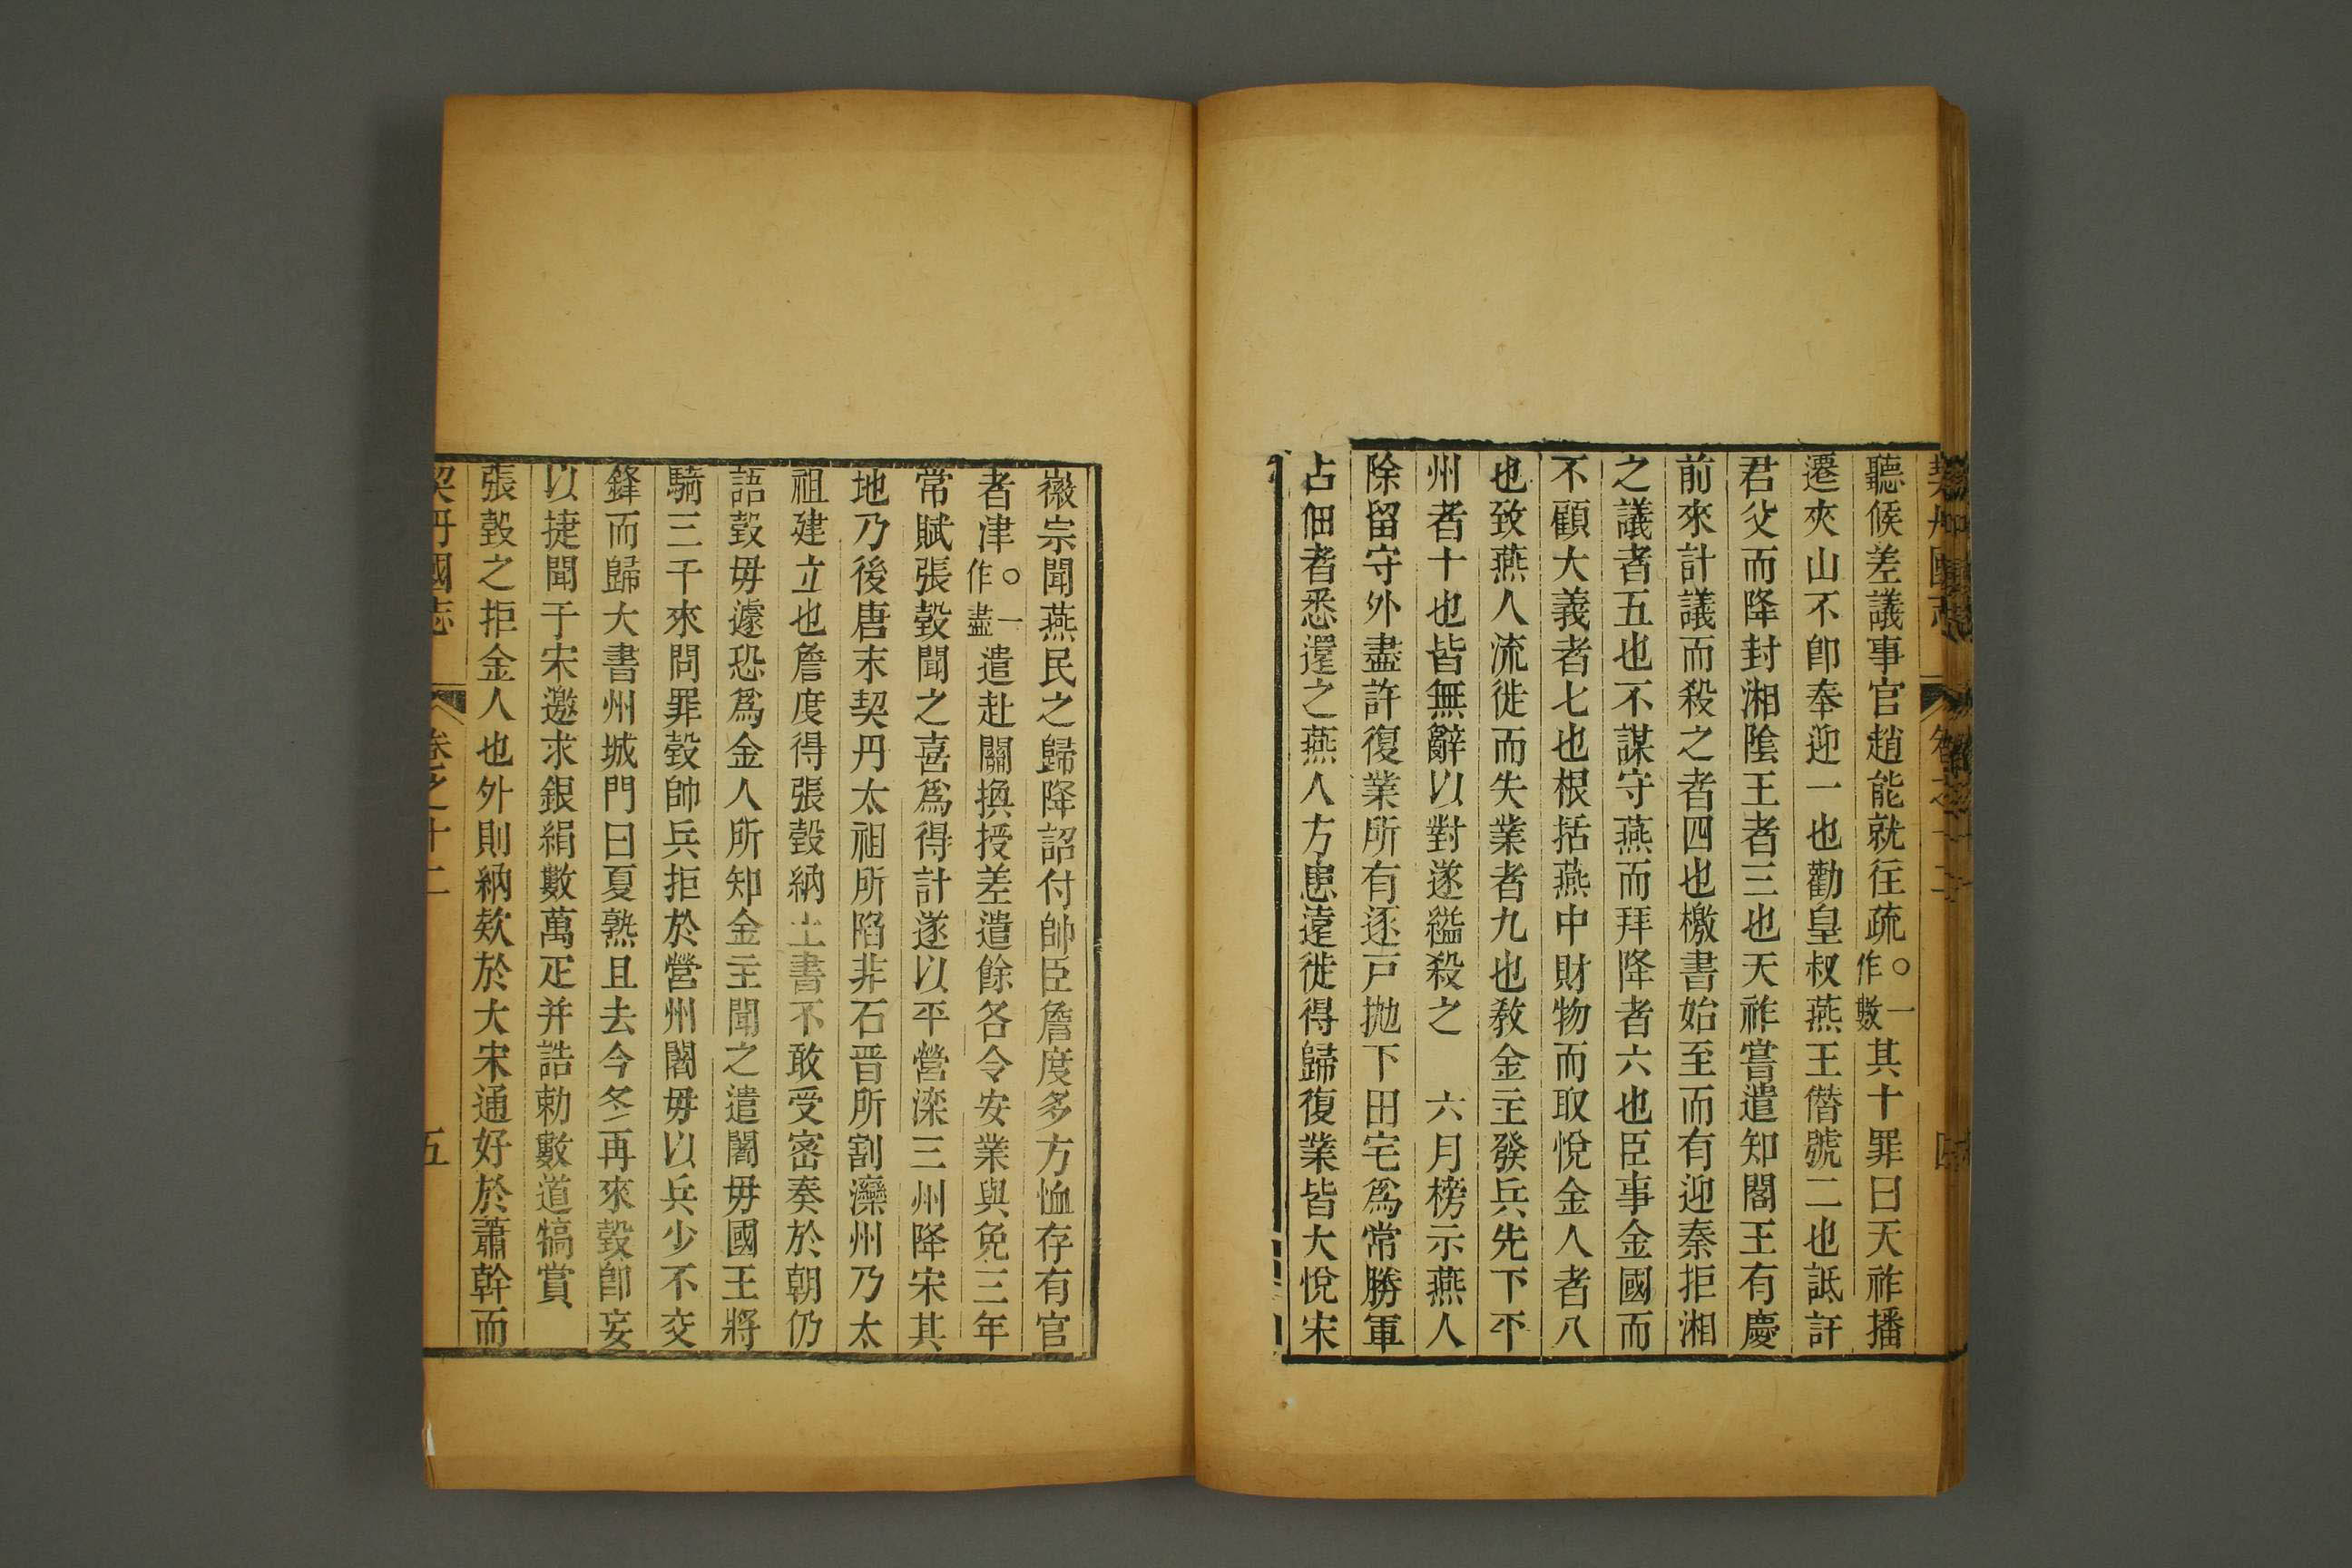 聽候差議事官趙能就往疏○一作數其十罪曰天祚播
遷夾山不卽奉迎一也勸皇叔燕王僭號二也詆訐
君父而降封湘陰王者三也天祚嘗遣知閤王有慶
前來計議而殺之者四也檄書始至而有迎秦拒湘
之議者五也不謀守燕而拜降者六也臣事金國而
不顧大義者七也根括燕中財物而取悅金人者八
也致燕人流徙而失業者九也敎金主發兵先下平
州者十也皆無辭以對遂縊殺之　六月榜示燕人
除留守外盡許復業所有逐戸拋下田宅爲常勝軍
占佃者悉還之燕人方患遠徙得歸復業皆大悅宋
徽宗聞燕民之歸降詔付帥臣詹度多方恤存有官
者津○一作盡遣赴闕換授差遣餘各令安業與免三年
常賦張瑴聞之喜爲得計遂以平營灤三州降宋其
地乃後唐末契丹太祖所陷非石晉所割灤州乃太
祖建立也詹度得張瑴納土書不敢受密奏於朝仍
語瑴毋遽恐爲金人所知金主聞之遣闍毋國王將
騎三千來問罪瑴帥兵拒於營州闍毋以兵少不交
鋒而歸大書州城門曰夏熟且去今冬再來瑴卽妄
以捷聞于宋邀求銀絹數萬疋并誥勅數道犒賞
張瑴之拒金人也外則納欵於大宋通好於蕭幹而
契丹國志　卷之十二　五